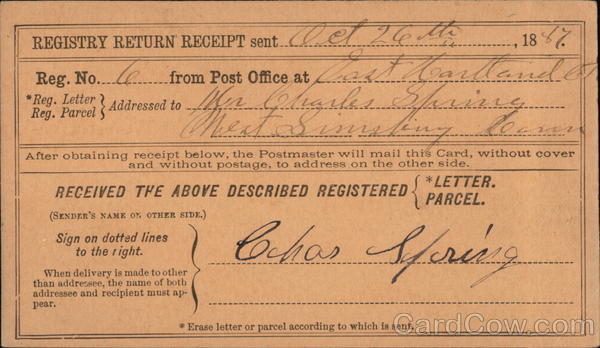 REGISTRY RETURN RECEIPT sent Oct 26th, 1887.
Reg. No. 6 from Post Office at East Hartland Ct
*Reg. Letter
Reg. Parcel } Addressed to Mr Charles Spring
West Simsbury Conn
After obtaining receipt below, the Postmaster will mail this Card, without cover
and without postage, to address on the other side.
RECEIVED THE ABOVE DESCRIBED REGISTERED { *LETTER.
PARCEL.
(SENDER'S NAME ON OTHER SIDE.)
Sign on dotted lines
to the right.
Chas Spring
When delivery is made to other
than addressee, the name of both
addressee and recipient must ap-
pear.
* Erase letter or parcel according to which is sent.
CardCow.com